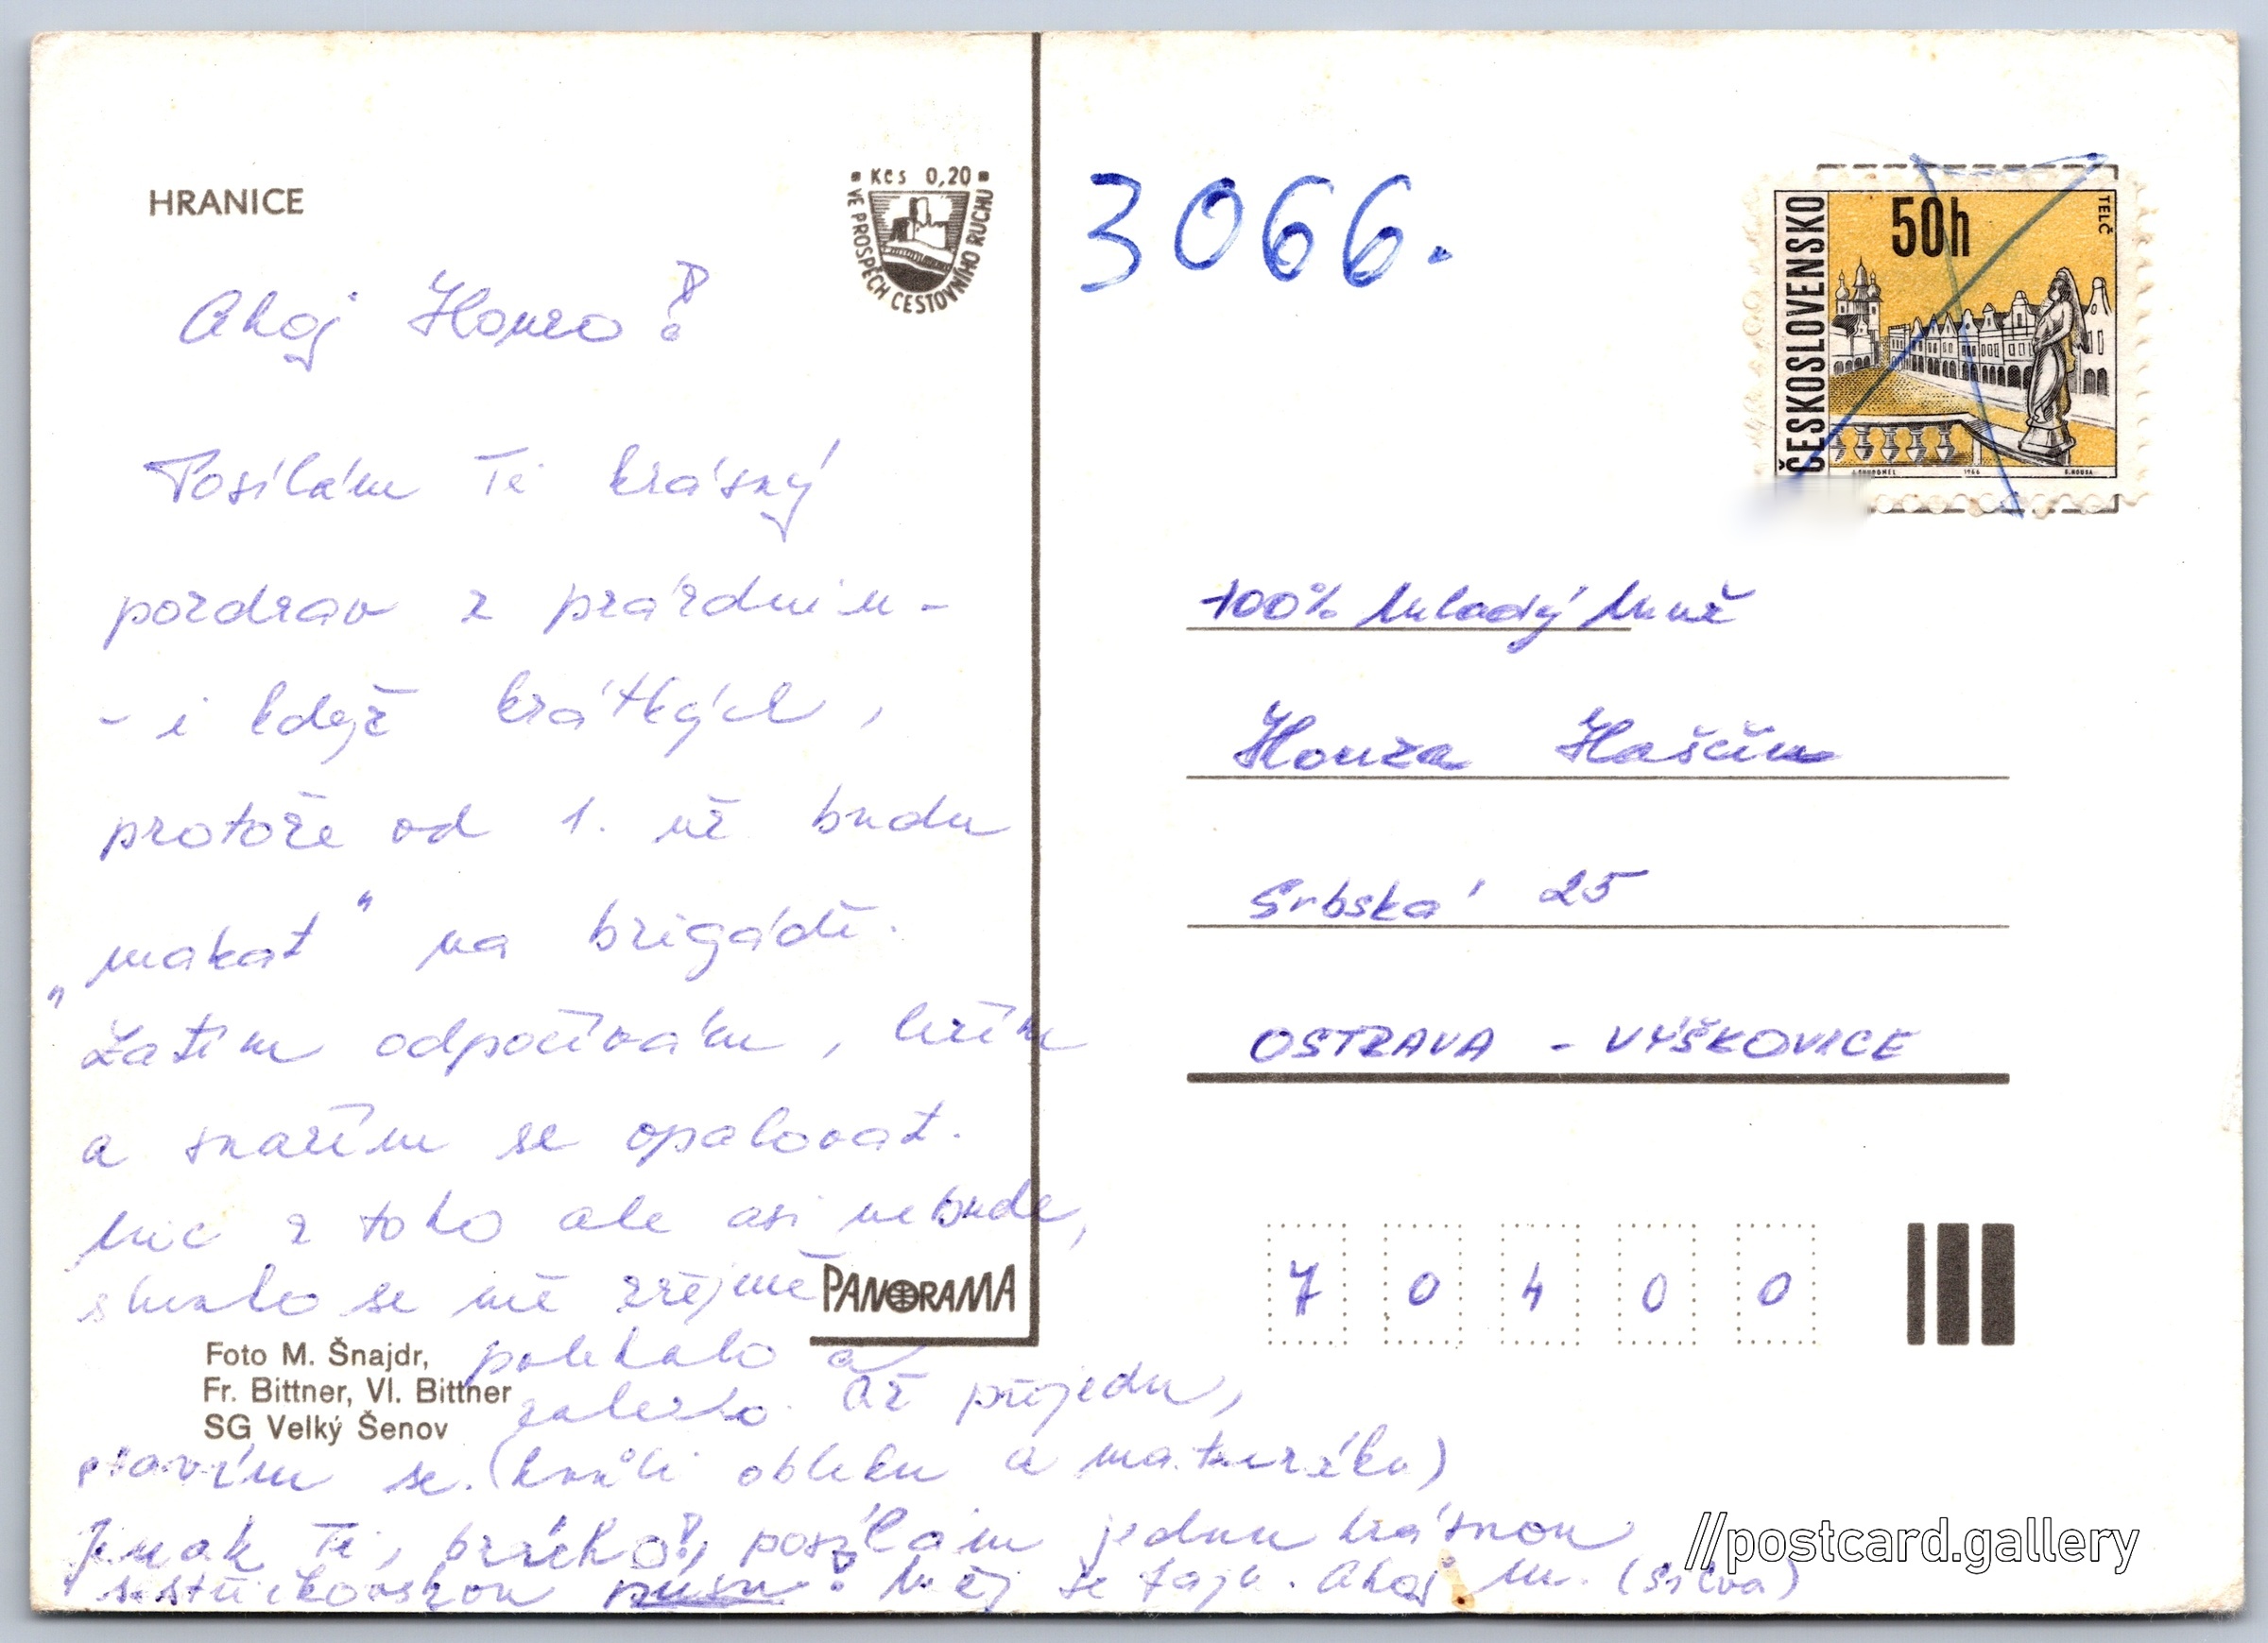 HRANICE
Kčs 0,20
VE PROSPĚCH CESTOVNÍHO RUCHU
Ahoj Honzo!
Posílám Ti krásný
pozdrav z prázdnin -
- i když krátkých,
protože od 1. už budu
„makat" na brigádě.
Zatím odpočívám, ležím
a snažím se opalovat.
Nic z toho ale asi nebude,
slunko se mě zřejmě
polekalo a
zalezlo. Až přijedu,
stavím se. (kvůli obleku a maturáku)
Jinak Ti, brácho!, posílám jednu krásnou
sestřičkovskou pusu! Měj se fajn. Ahoj M. (Silva)
PANORAMA
Foto M. Šnajdr,
Fr. Bittner, Vl. Bittner
SG Velký Šenov
3066.
ČESKOSLOVENSKO
50h
TELČ
1966
100% Mladý Muž
Honza
Srbská 25
OSTRAVA - VÝŠKOVICE
70400
//postcard.gallery